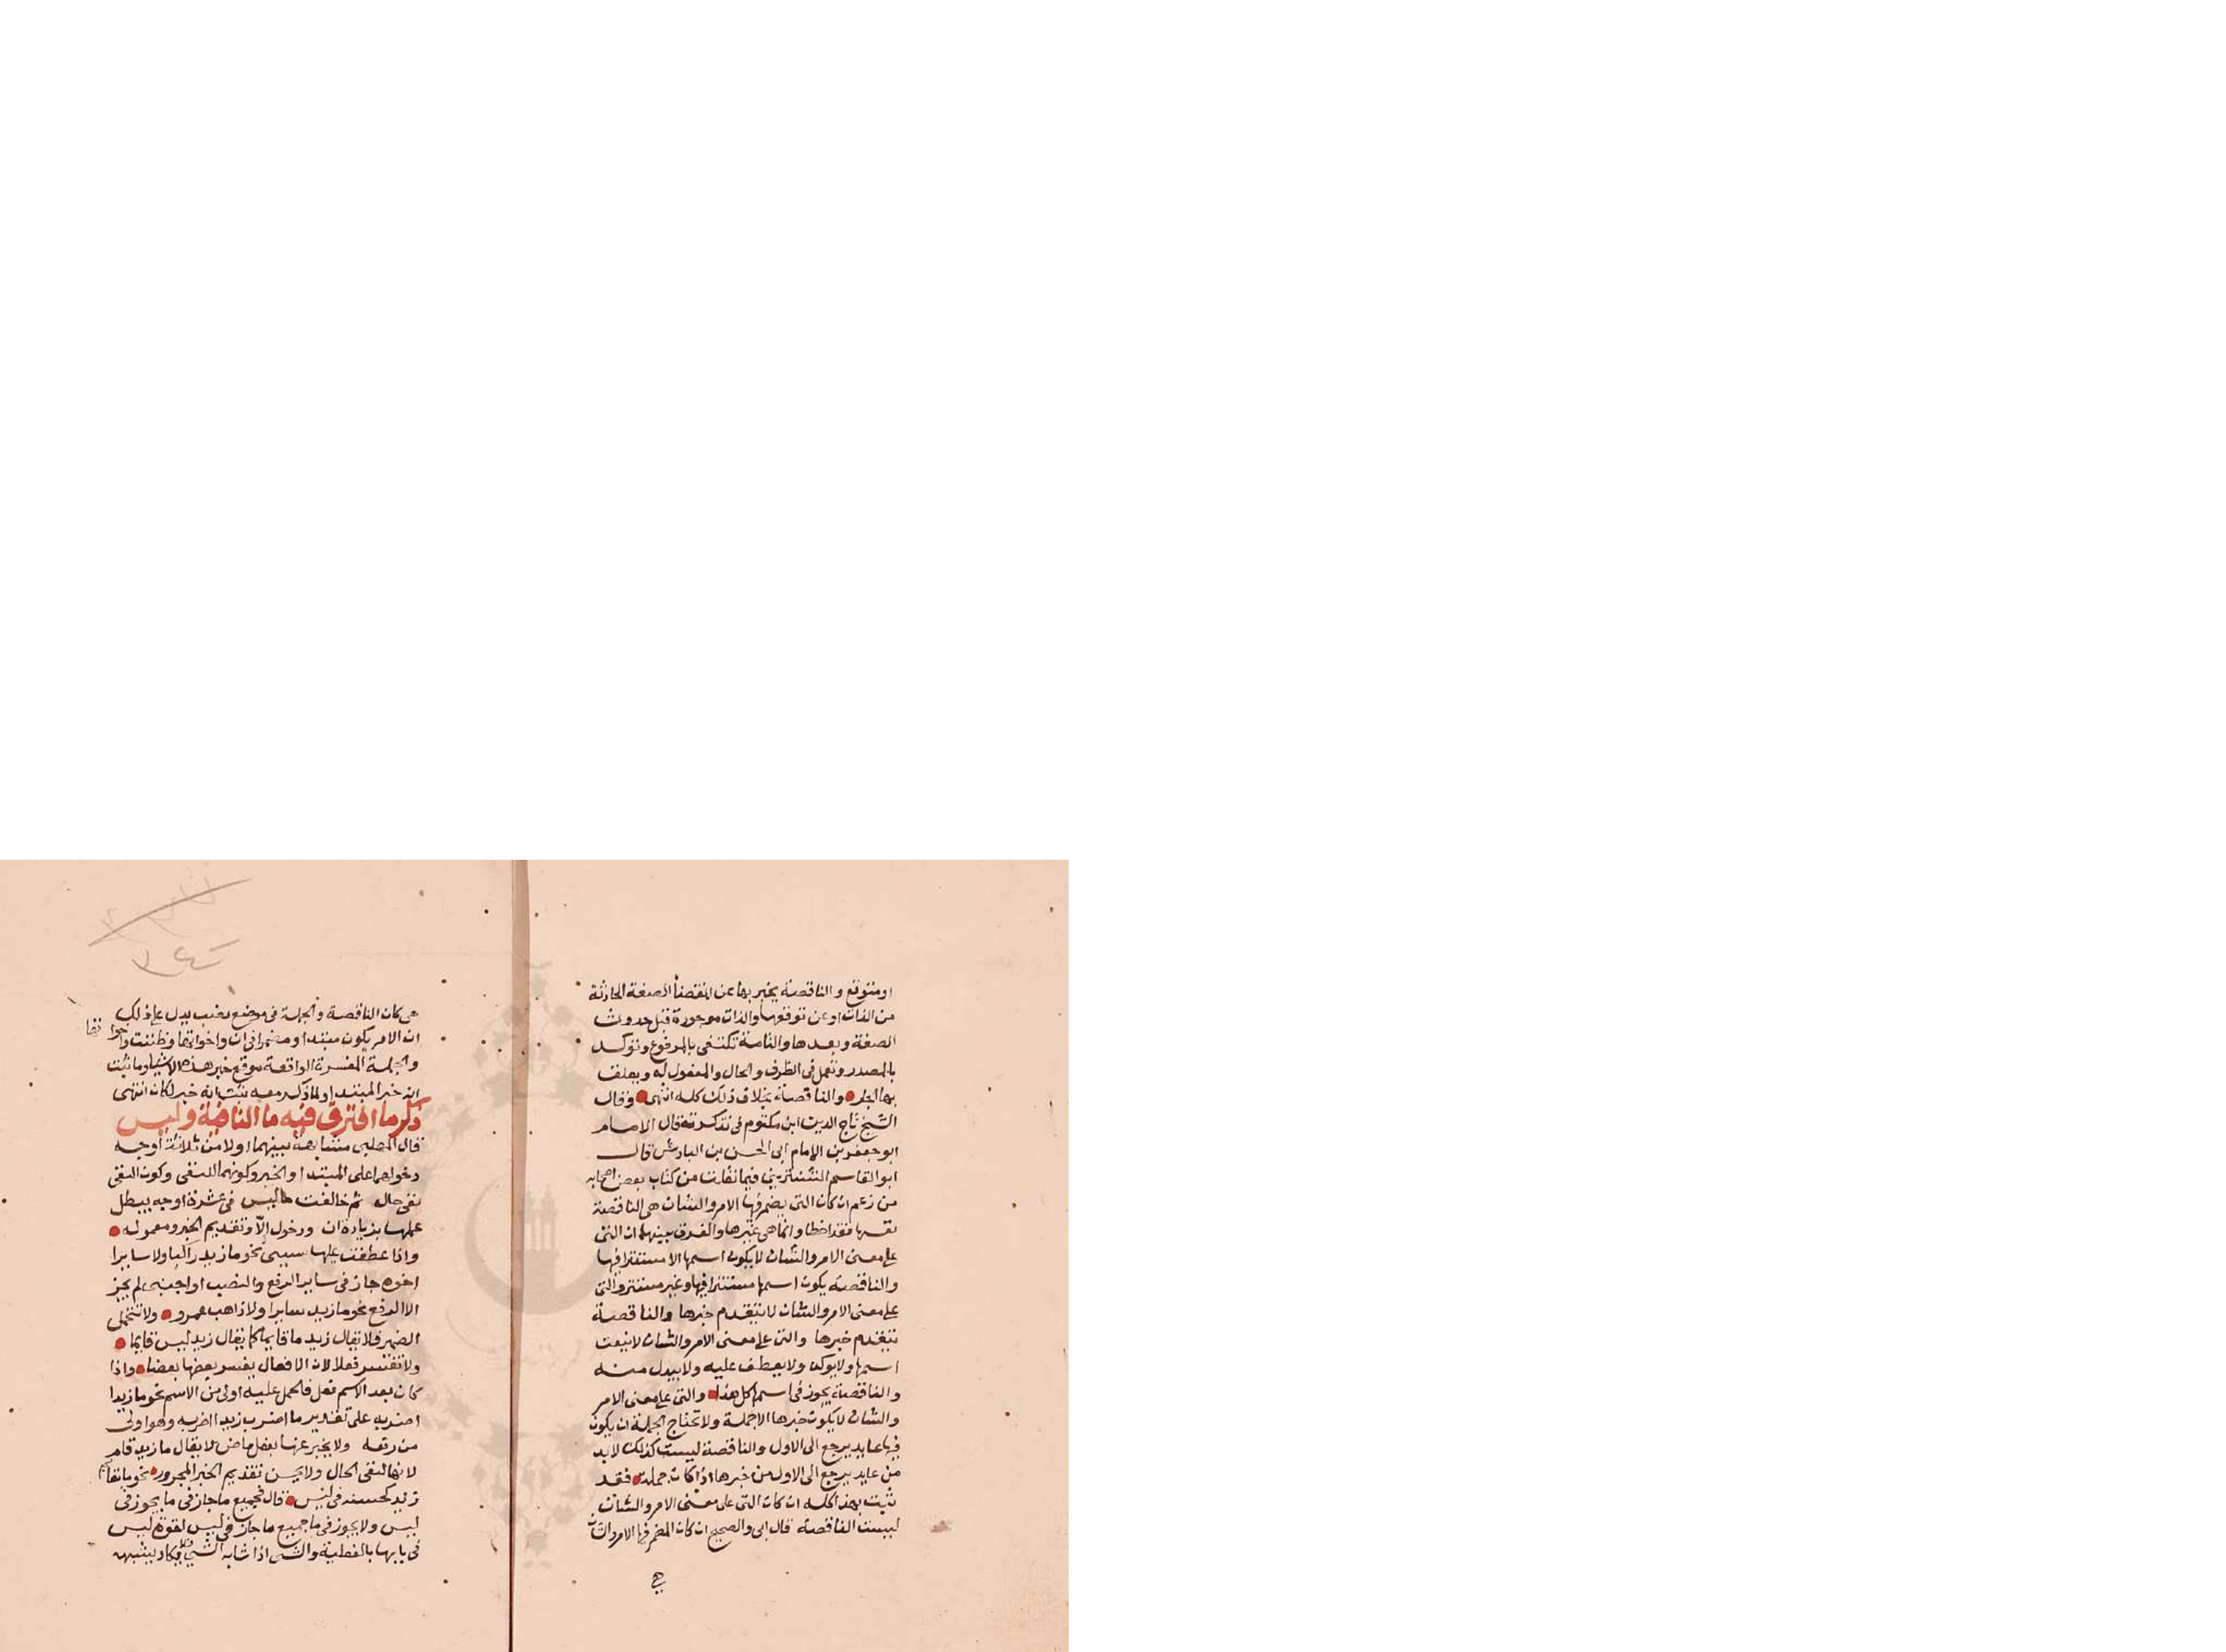 او متوقع والناقصة يخبر بها عن انقضا الصفة الحادثة
من الذات او عن توقعها والذات موجودة قبل حدوث
الصفة وبعدها والتامة تكتفى بالمرفوع وتوكد
بالمصدر وتعمل فى الظرف والحال والمفعول له ويعلق
بها الجار والناقصة بخلاف ذلك كله انتهى وقال
الشيخ تاج الدين ابن مكتوم فى تذكرته قال الامام
ابو جعفر بن الامام ابى الحسن بن الباذش قال
ابو القاسم الشنترينى فيما نقلت من كتاب بعض اصحابه
من زعم ان كان التى يضمر فيها الامر والشان هى الناقصة
نفسها فقد اخطا وانما هى غيرها والفرق بينهما ان التى
على معنى الامر والشان لا يكون اسمها الا مستترا فيها
والناقصة يكون اسمها مستترا فيها وغير مستتر والتى
على معنى الامر والشان لا يتقدم خبرها والناقصة
يتقدم خبرها والتى على معنى الامر والشان لا ينعت
اسمها ولا يوكد ولا يعطف عليه ولا يبدل منه
والناقصة يجوز فى اسمها كل هذا والتى على معنى الامر
والشان لا يكون خبرها الا جملة ولا تحتاج الجملة ان يكون
فيها عايد يرجع الى الاول والناقصة ليست كذلك لا بد
من عايد يرجع الى الاول من خبرها اذا كان جملة فقد
ثبت بهذا كله ان كان التى على معنى الامر والشان
ليست الناقصة قال ابى والصحيح ان كان المضمر فيها الامر والشان
هى
هى كان الناقصة والجملة فى موضع نصب يدل على ذلك
ان الامر يكون مبتدا ومضمرا فى ان واخواتها وظننت واخواتها
والجملة المفسرة الواقعة موقع خبر هذه الاشياء وما ثبت
انه خبر المبتدا ولما ذكر معه ثبت انه خبر لكان انتهى
ذكر ما افترق فيه ما النافية وليس
قال المهلبى مشابهة بينهما اولا من ثلاثة اوجه
دخولهما على المبتدا والخبر وكونهما للنفى وكون النفى
نفى حال ثم خالفت ما ليس فى عشرة اوجه يبطل
عملها بزيادة ان ودخول الّا وتقديم الخبر ومعموله
واذا عطفت عليها سببى نحو ما زيد راكبا ولا سايرا
اخوه جاز فى ساير الرفع والنصب او اجنبى لم يجز
الا الرفع نحو ما زيد سايرا ولا ذاهب عمرو ولا تتحمل
الضمير فلا يقال زيد ما قايما كما يقال زيد ليس قايما
ولا تفسر فعلا لان الافعال يفسر بعضها بعضا واذا
كان بعد الاسم فعل فالحمل عليه اولى من الاسم نحو ما زيدا
اضربه على تقدير ما اضرب زيدا اضربه وهو اولى
من رفعه ولا يخبر عنها بفعل ماض لا يقال ما زيد قام
لانها لنفى الحال ولا يحسن تقديم الخبر المجرور نحو ما بقايم
زيد كحسنه فى ليس قال فجميع ما جاز فى ما يجوز فى
ليس ولا يجوز فى ما جميع ما جاز فى ليس لقوة ليس
فى بابها بالفعلية والشى اذا شابه الشى فلا يكاد يشبهه